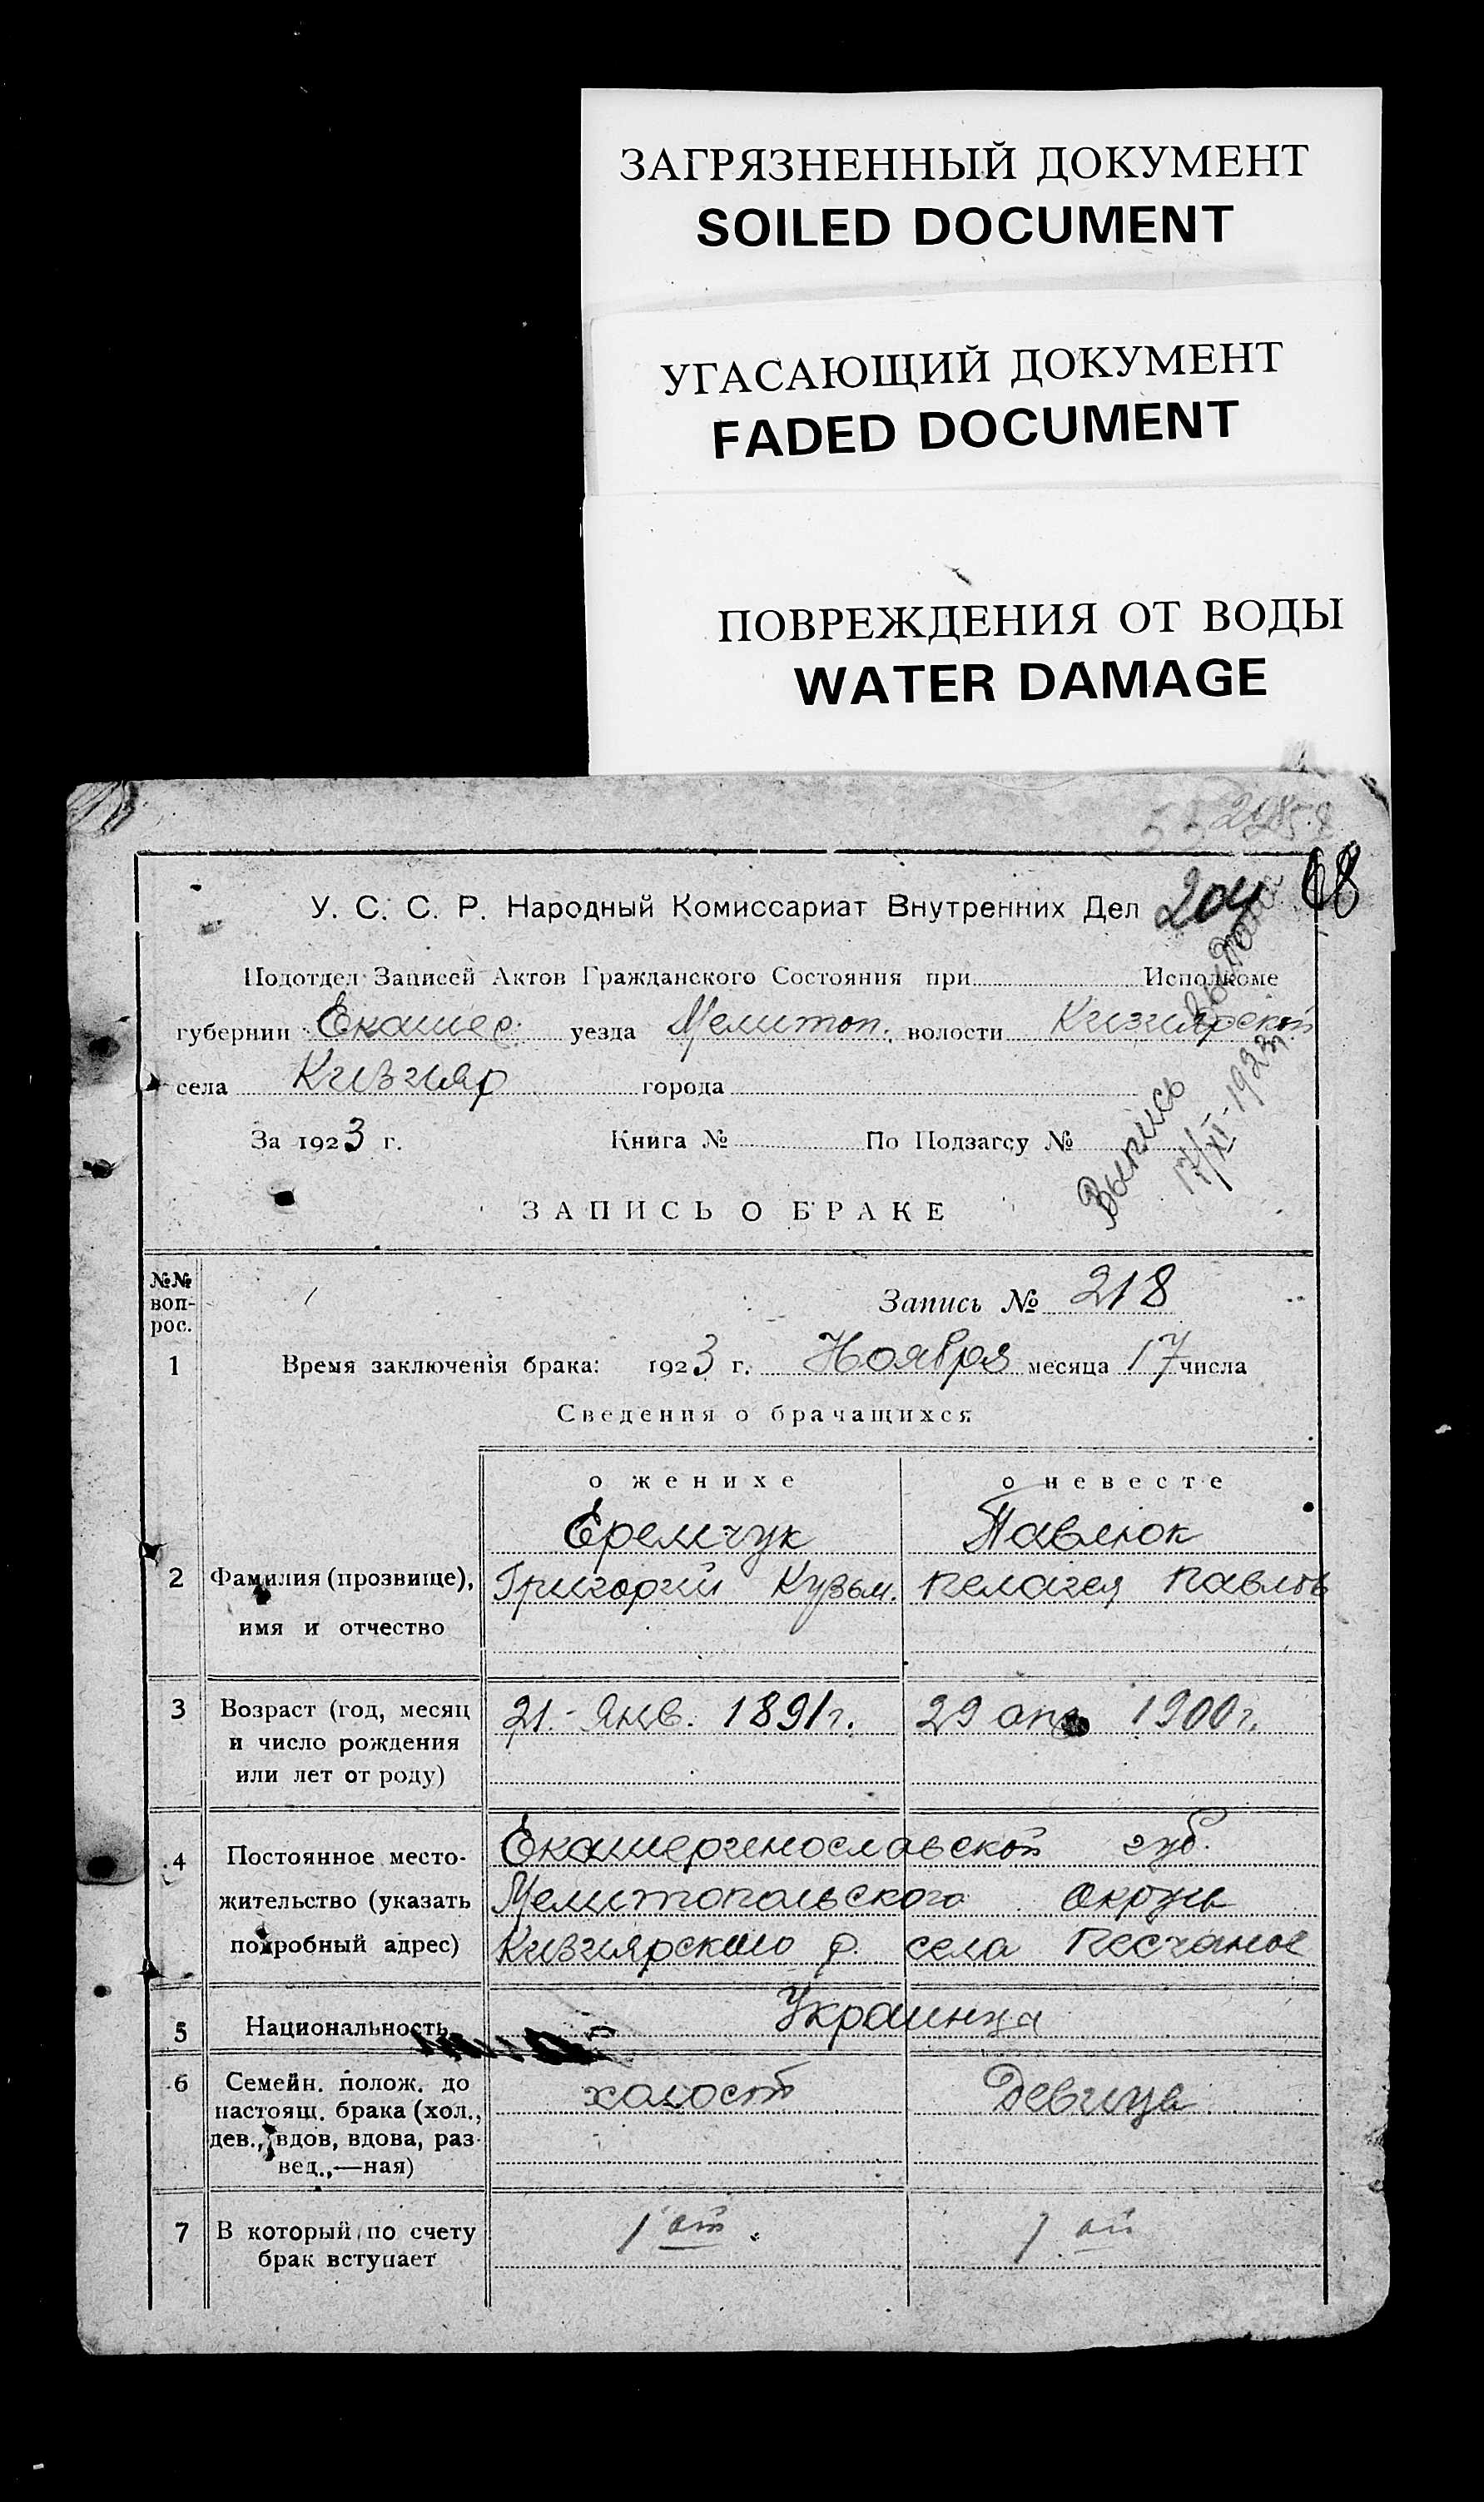 ЗАГРЯЗНЕННЫЙ ДОКУМЕНТ
SOILED DOCUMENT
УГАСАЮЩИЙ ДОКУМЕНТ
FADED DOCUMENT
ПОВРЕЖДЕНИЯ ОТ ВОДЫ
WATER DAMAGE
68
У. С. С. Р. Народный Комиссариат Внутренних Дел 204
Подотдел Записей Актов Гражданского Состояния при Исполкоме
губернии Екатер. уезда Мелитоп. волости Кизиярской
села Кизияр города
За 1923 г. Книга № По Подзагсу №
Выпись выдана
17/XI-1923
ЗАПИСЬ О БРАКЕ
№№ воп-рос.
Запись № 218
1 Время заключенія брака: 1923 г. Ноября месяца 17 числа
Сведения о брачащихся
о женихе о невесте
Еремчук Павлюк
2 Фамилия (прозвище), Григорий Кузьм. Пелагея Павлов
имя и отчество
3 Возраст (год, месяц 21.- Янв. 1891 г. 29 апр 1900 г.
и число рождения
или лет от роду)
4 Постоянное место- Екатеринославской губ.
жительство (указать Мелитопольского Округа
подробный адрес) Кизиярского р. села Песчаное
5 Национальность Украинца
6 Семейн. полож. до холост Девица
настоящ. брака (хол.,
дев., вдов, вдова, раз-
вед.,—ная)
7 В который по счету 1 ой 1 ой
брак вступает